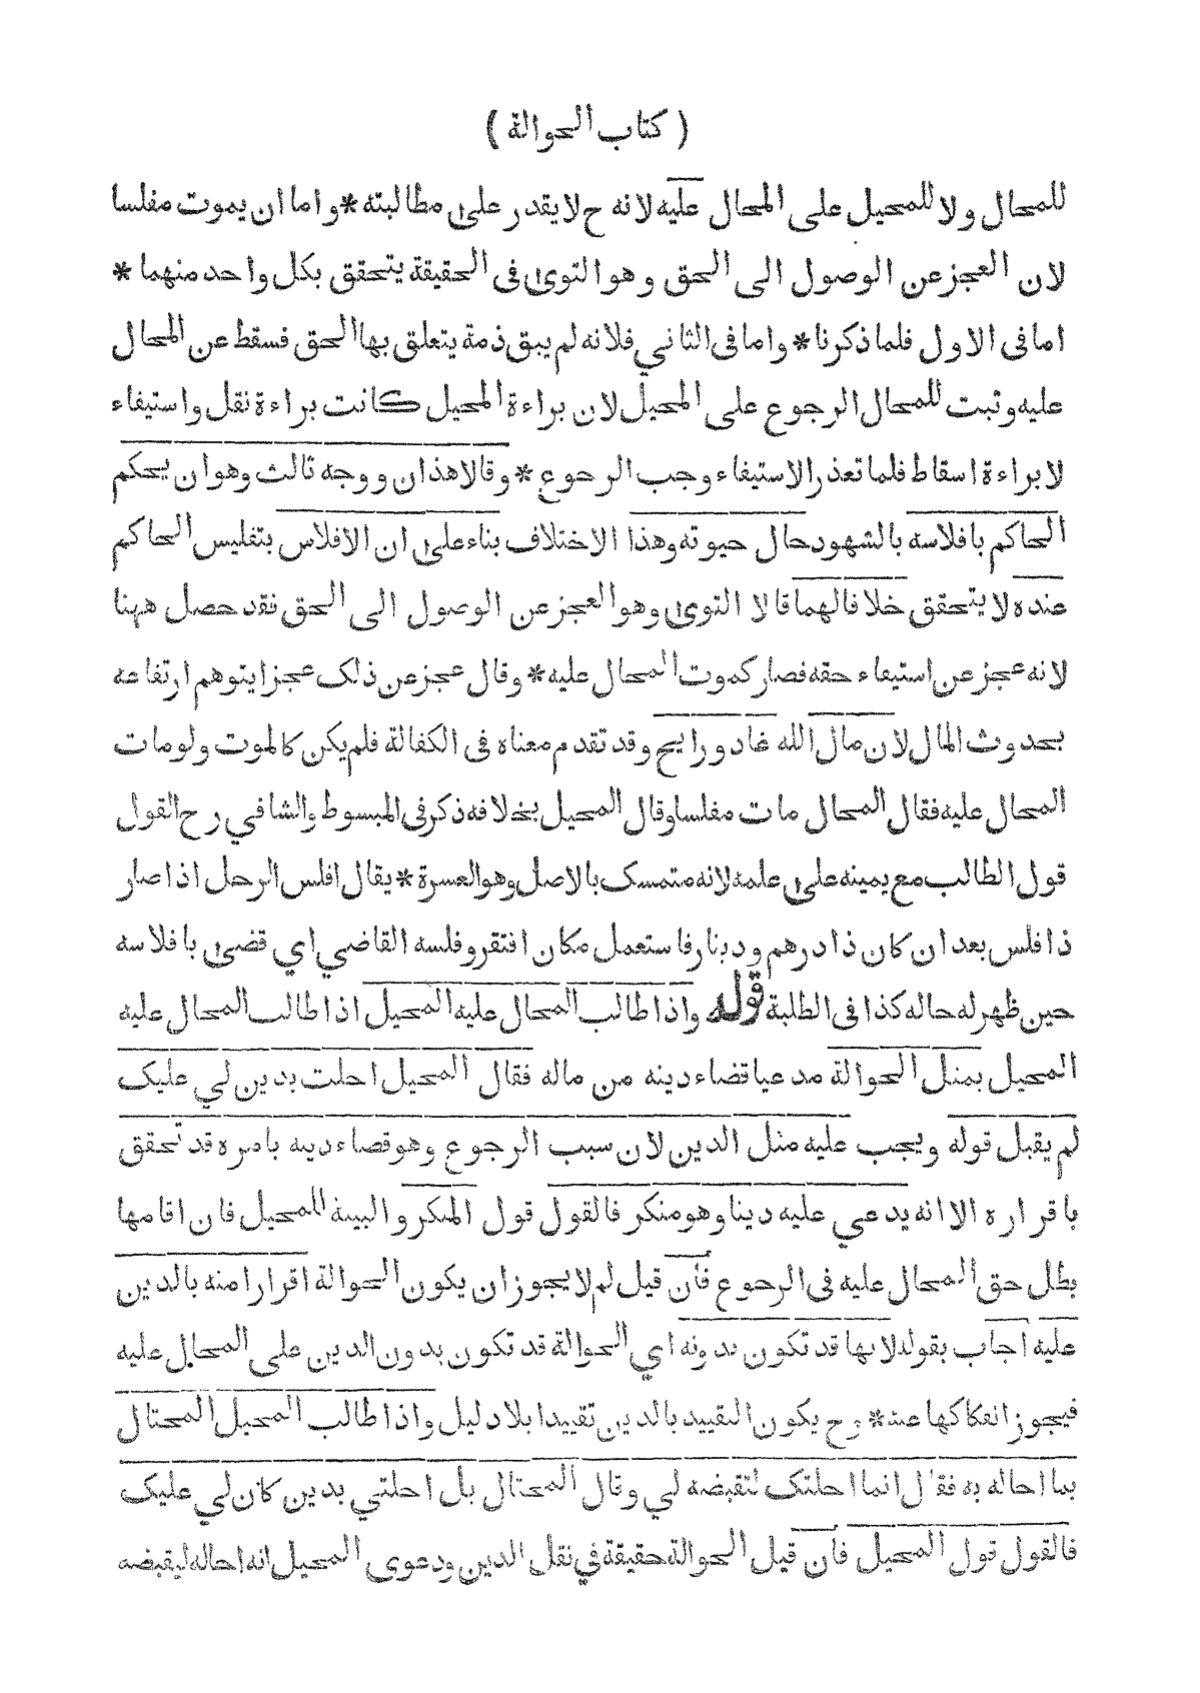 ( كتاب الحوالة )
للمحال ولا للمحيل على المحال عليه لانه ح لا يقدر على مطالبته * واما ان يموت مفلسا
لان العجز عن الوصول الى الحق وهو التوى فى الحقيقة يتحقق بكل واحد منهما *
اما فى الاول فلما ذكرنا * واما فى الثاني فلانه لم يبق ذمة يتعلق بها الحق فسقط عن المحال
عليه وثبت للمحال الرجوع على المحيل لان براءة المحيل كانت براءة نقل واستيفاء
لا براءة اسقاط فلما تعذر الاستيفاء وجب الرجوع * وقالا هذان ووجه ثالث وهو ان يحكم
الحاكم بافلاسه بالشهود حال حيوته وهذا الاختلاف بناء على ان الافلاس بتفليس الحاكم
عنده لا يتحقق خلافا لهما قالا التوى وهو العجز عن الوصول الى الحق نقد حصل ههنا
لانه عجز عن استيفاء حقه فصار كموت المحال عليه * وقال عجز عن ذلك عجزا يتوهم ارتفاعه
بحدوث المال لان مال الله غاد ورايح وقد تقدم معناه فى الكفالة فلم يكن كالموت ولو مات
المحال عليه فقال المحال مات مفلسا وقال المحيل بخلافه ذكر فى المبسوط والشافي رح القول
قول الطالب مع يمينه على علمه لانه متمسك بالاصل وهو العسرة * يقال افلس الرجل اذا صار
ذا فلس بعد ان كان ذا درهم ودينار فاستعمل مكان افتقر وفلسه القاضي اي قضى بافلاسه
حين ظهر له حاله كذا فى الطلبة قوله واذا طالب المحال عليه المحيل اذا طالب المحال عليه
المحيل بمثل الحوالة مدعيا قضاء دينه من ماله فقال المحيل احلت بدين لي عليك
لم يقبل قوله ويجب عليه مثل الدين لان سبب الرجوع وهو قضاء دينه بامره قد تحقق
باقراره الا انه يدعي عليه دينا وهو منكر فالقول قول المنكر والبينة للمحيل فان اقامها
بطل حق المحال عليه فى الرجوع فان قيل لم لا يجوز ان يكون الحوالة اقرارا منه بالدين
عليه اجاب بقوله لانها قد تكون بدونه اي الحوالة قد تكون بدون الدين على المحال عليه
فيجوز انفكاكها عنه * وح يكون التقييد بالدين تقييدا بلا دليل واذا طالب المحيل المحتال
بما احاله به فقال انما احلتك لتقبضه لي وقال المحتال بل احلتي بدين كان لي عليك
فالقول قول المحيل فان قيل الحوالة حقيقة في نقل الدين ودعوى المحيل انه احاله ليقبضه